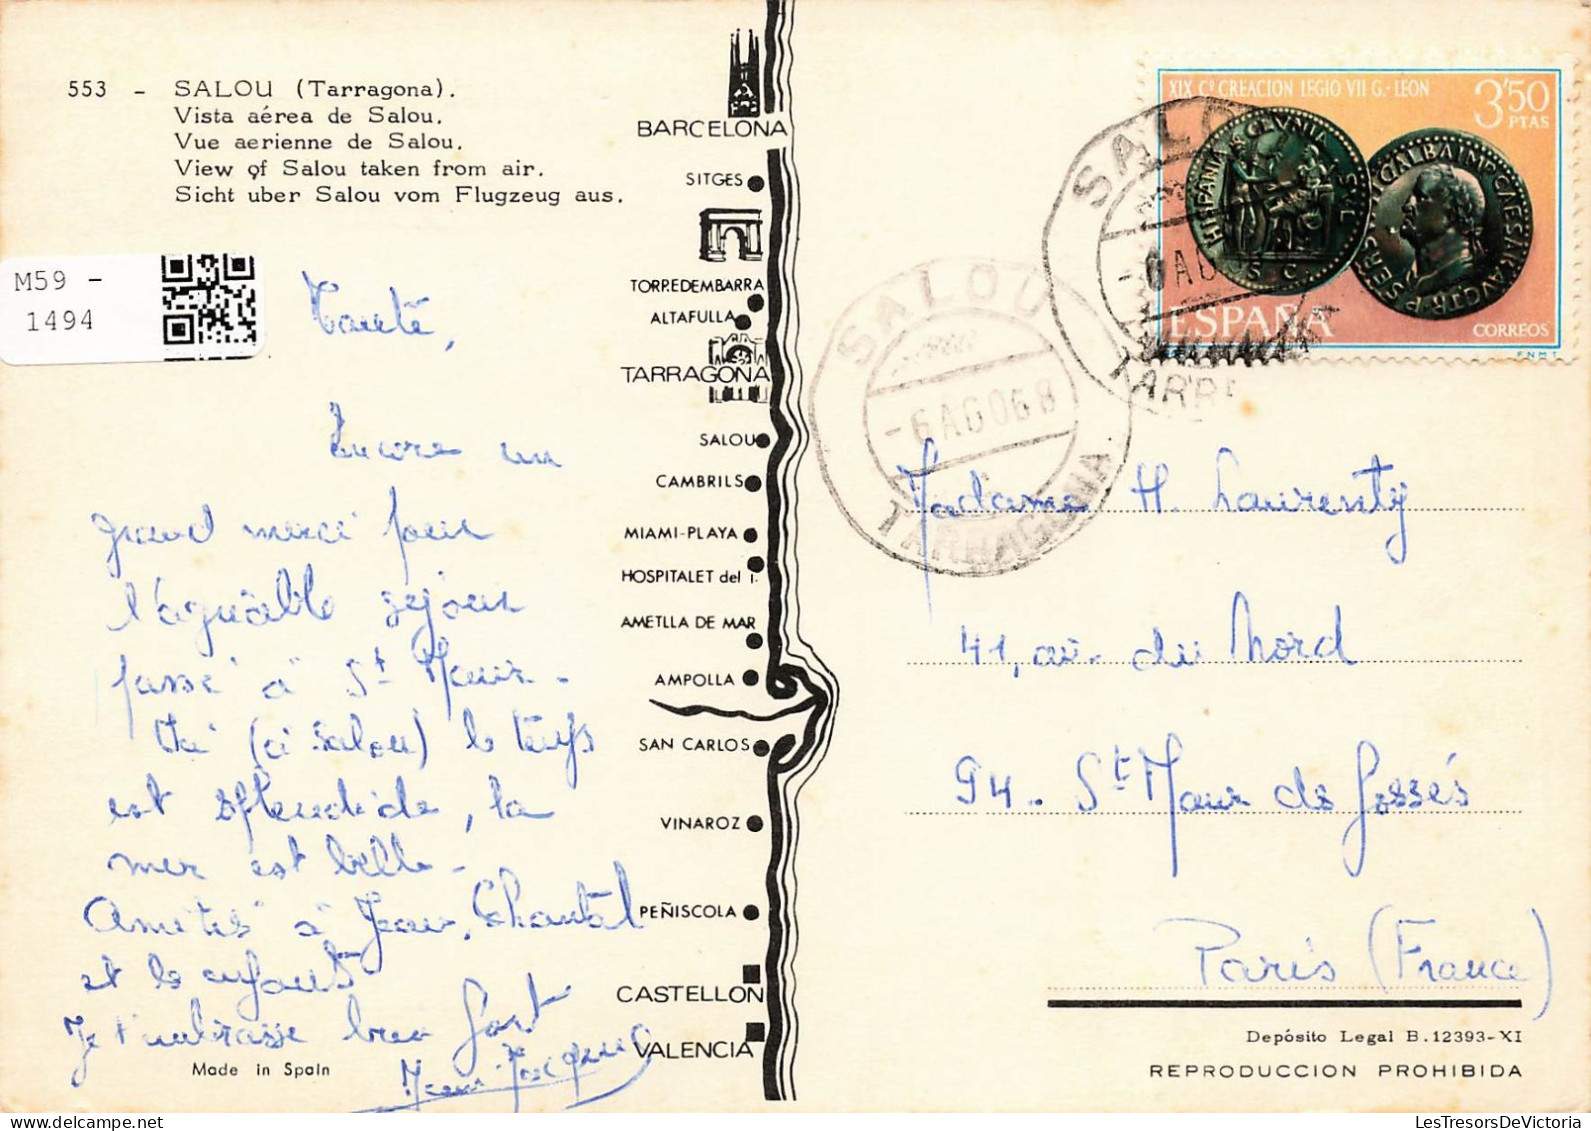 553 - SALOU (Tarragona).
Vista aérea de Salou.
Vue aerienne de Salou.
View of Salou taken from air.
Sicht uber Salou vom Flugzeug aus.
M59 -
1494
Encore un
grand merci pour
l'agréable séjour
passé à St Maur.
Ici (à Salou) le temps
est splendide, la
mer est belle.
Amitiés à Jean, Chantal
et le enfants
Je t'embrasse bien fort
Jean-Jacques
Made in Spain
BARCELONA
SITGES
TORREDEMBARRA
ALTAFULLA
TARRAGONA
SALOU
CAMBRILS
MIAMI-PLAYA
HOSPITALET del I.
AMETLLA DE MAR
AMPOLLA
SAN CARLOS
VINAROZ
PEÑISCOLA
CASTELLON
VALENCIA
XIX Cº CREACION LEGIO VII G.- LEON
3'50
PTAS
HISPANIA CLVNIA SVL
S C
SER GALBA IMP CAESAR AVG TR P
ESPAÑA
CORREOS
F N M T
SALOU
-6 AGO
TARR
SALOU
-6 AGO 68
TARRAGONA
Madame H. Laurenty
41, av. du Nord
94. St Maur des Fossés
Paris (France)
Depósito Legal B. 12393-XI
REPRODUCCION PROHIBIDA
LesTresorsDeVictoria.com